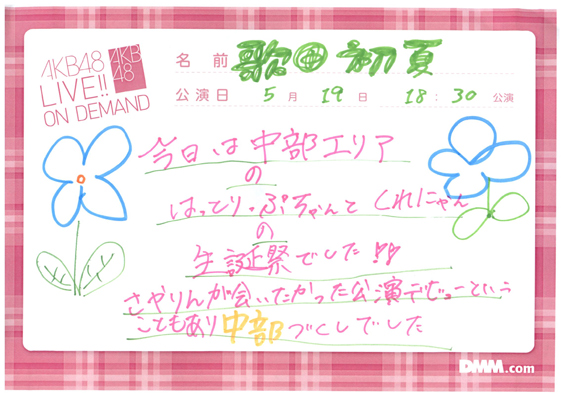 AKB48
LIVE!!
ON DEMAND
AKB
48
名前 歌田初夏
公演日 5月19日 18:30公演
今日は中部エリア
の
はっとり・ぷちゃんと くれにゃん
の
生誕祭でした!!
さやりんが会いたかった公演デビューという
こともあり中部づくしでした
DMM.com